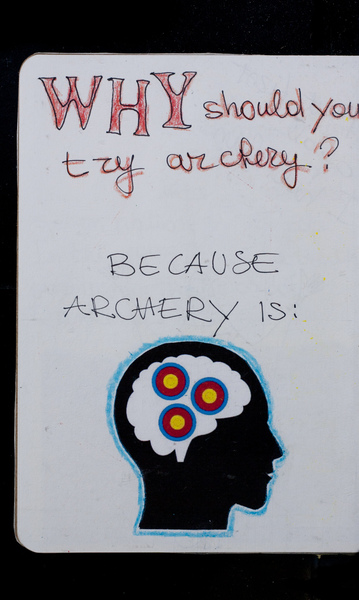 WHY should you
try archery?
BECAUSE
ARCHERY IS: